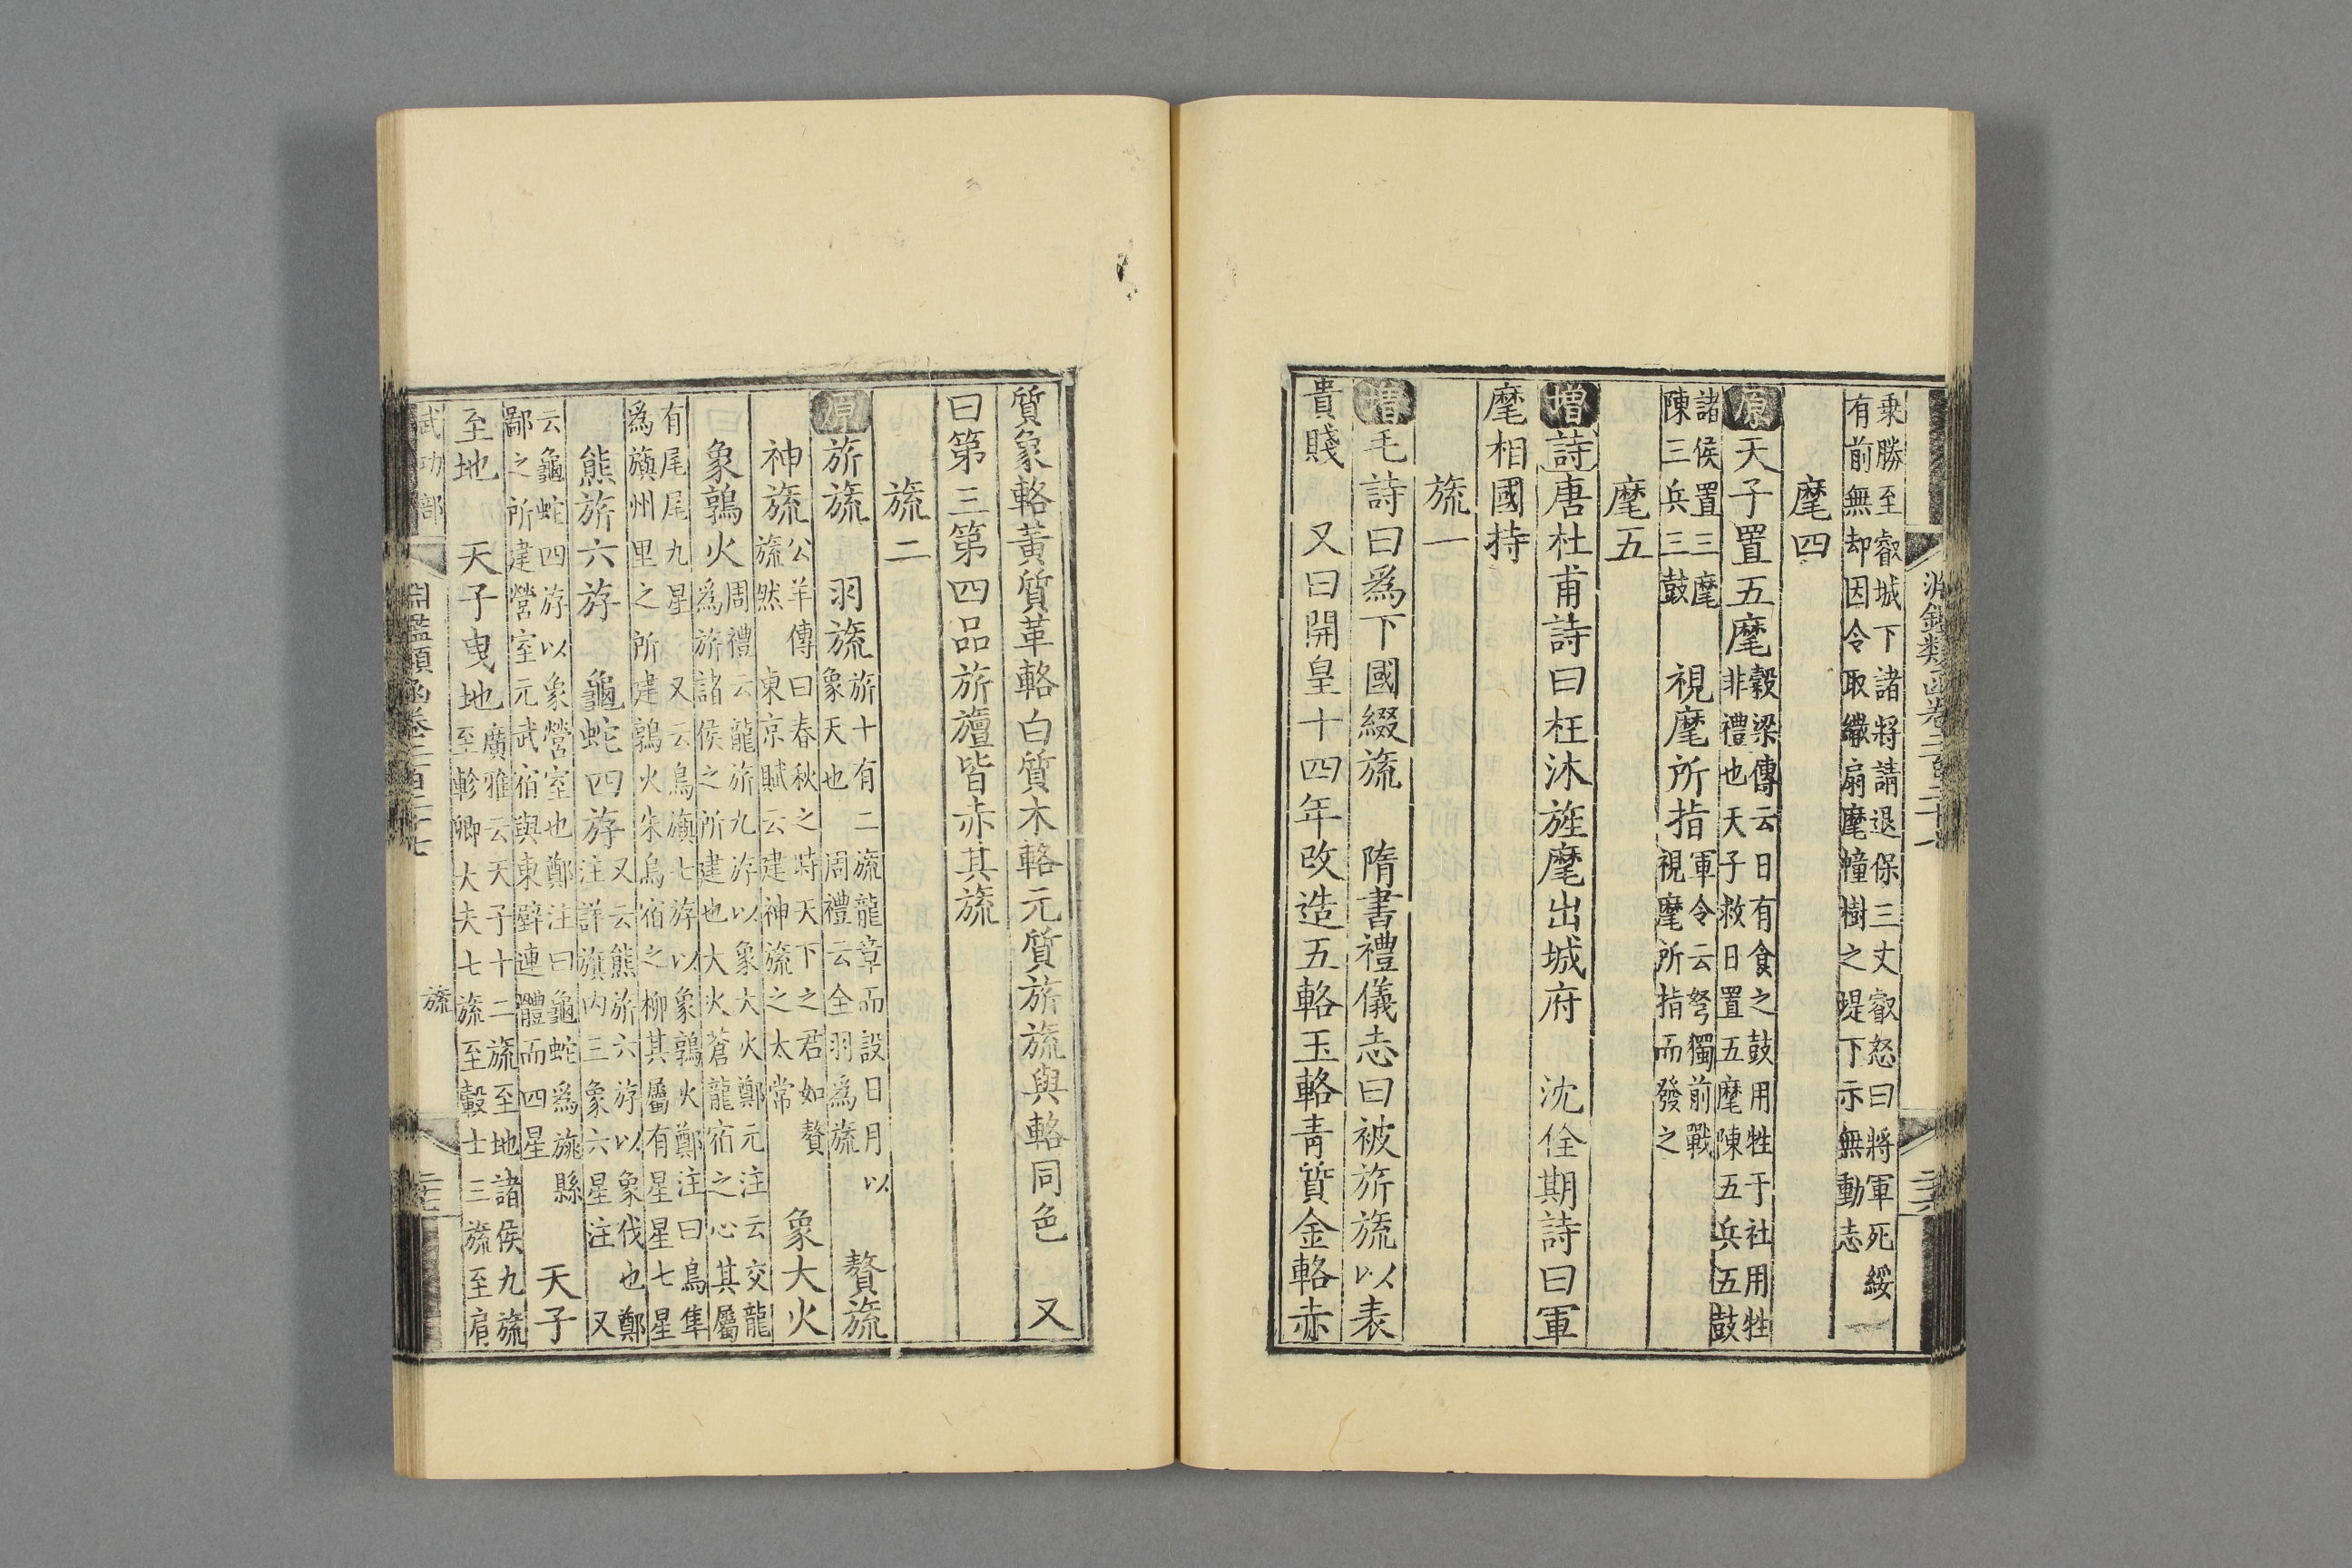 乘勝至叡城下諸將請退保三丈叡怒曰將軍死綏
有前無却因令取繖扇麾幢樹之堤下示無動志
麾四
原天子置五麾
榖梁傳云日有食之鼓用牲于社用牲
非禮也天子救日置五麾陳五兵五鼓
諸侯置三麾
陳三兵三鼓
視麾所指
軍令云弩獨前戰
視麾所指而發之
麾五
增詩唐杜甫詩曰枉沐旌麾出城府 沈佺期詩曰軍
麾相國持
旒一
增毛詩曰爲下國綴旒 隋書禮儀志曰被旂旒以表
貴賤 又曰開皇十四年改造五輅玉輅靑質金輅赤
質象輅黃質革輅白質木輅元質旂旒與輅同色 又
曰第三第四品旂旜皆赤其旒
旒二
原旂旒 羽旒
旂十有二旒龍章而設日月以
象天也 周禮云全羽爲旒
贅旒
神旒
公羊傳曰春秋之時天下之君如贅
旒然 東京賦云建神旒之太常
象大火
象鶉火
周禮云龍旂九斿以象大火鄭元注云交龍
爲旂諸侯之所建也大火蒼龍宿之心其屬
有尾尾九星 又云鳥旟七斿以象鶉火鄭注曰鳥隼
爲旟州里之所建鶉火朱鳥宿之柳其屬有星星七星
熊旂六斿 龜蛇四斿
又云熊旂六斿以象伐也鄭
注詳旟内三象六星注 又
云龜蛇四斿以象營室也鄭注曰龜蛇爲旐縣
鄙之所建營室元武宿與東壁連體而四星
天子
至地 天子曳地
廣雅云天子十二旒至地諸侯九旒
至軫卿大夫七旒至轂士三旒至肩
武功部
淵鑑類函卷二百二十七
旒
二十七